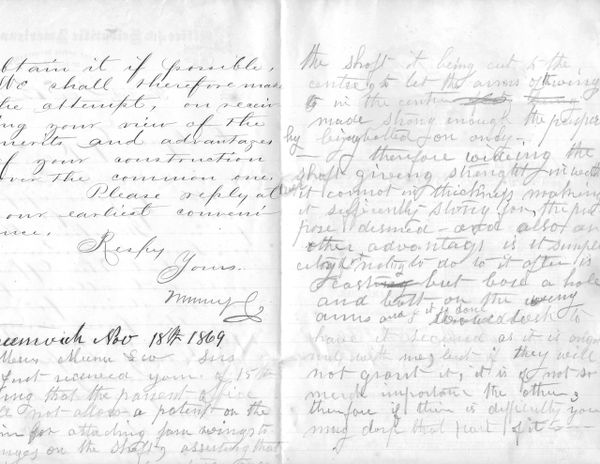 obtain it if possible,
We shall therefore make
the attempt, on receiv
ing your view of the
merits and advantages
of your construction
over the common one.
Please reply at
your earliest conveni
ence.
Respy
Yours.
Munn & Co
Greenwich Nov 18th 1869
Mess Munn & Co Sirs
I just received yours of 15th
ing that the patent office
not allow a patent on the
for attaching fan wings to
on the shaft, asserting that
the shaft it being cut to the
centre to let the arms of wing
in the centre
made strong enough the
by being bolted on only —
I therefore widening the
shaft giving strength in width
it cannot in thickness making
it sufficiently strong for the pur
pose desired — and also an
other advantage is it simple
only to do to it after is
cast but bore a hole
and bolt on the wing
arms and it is done
I would wish to
have it secured as it is
with me, but if they will
not grant it, it is of not so
much importance the other,
therefore if there is difficulty you
may drop that part of it —